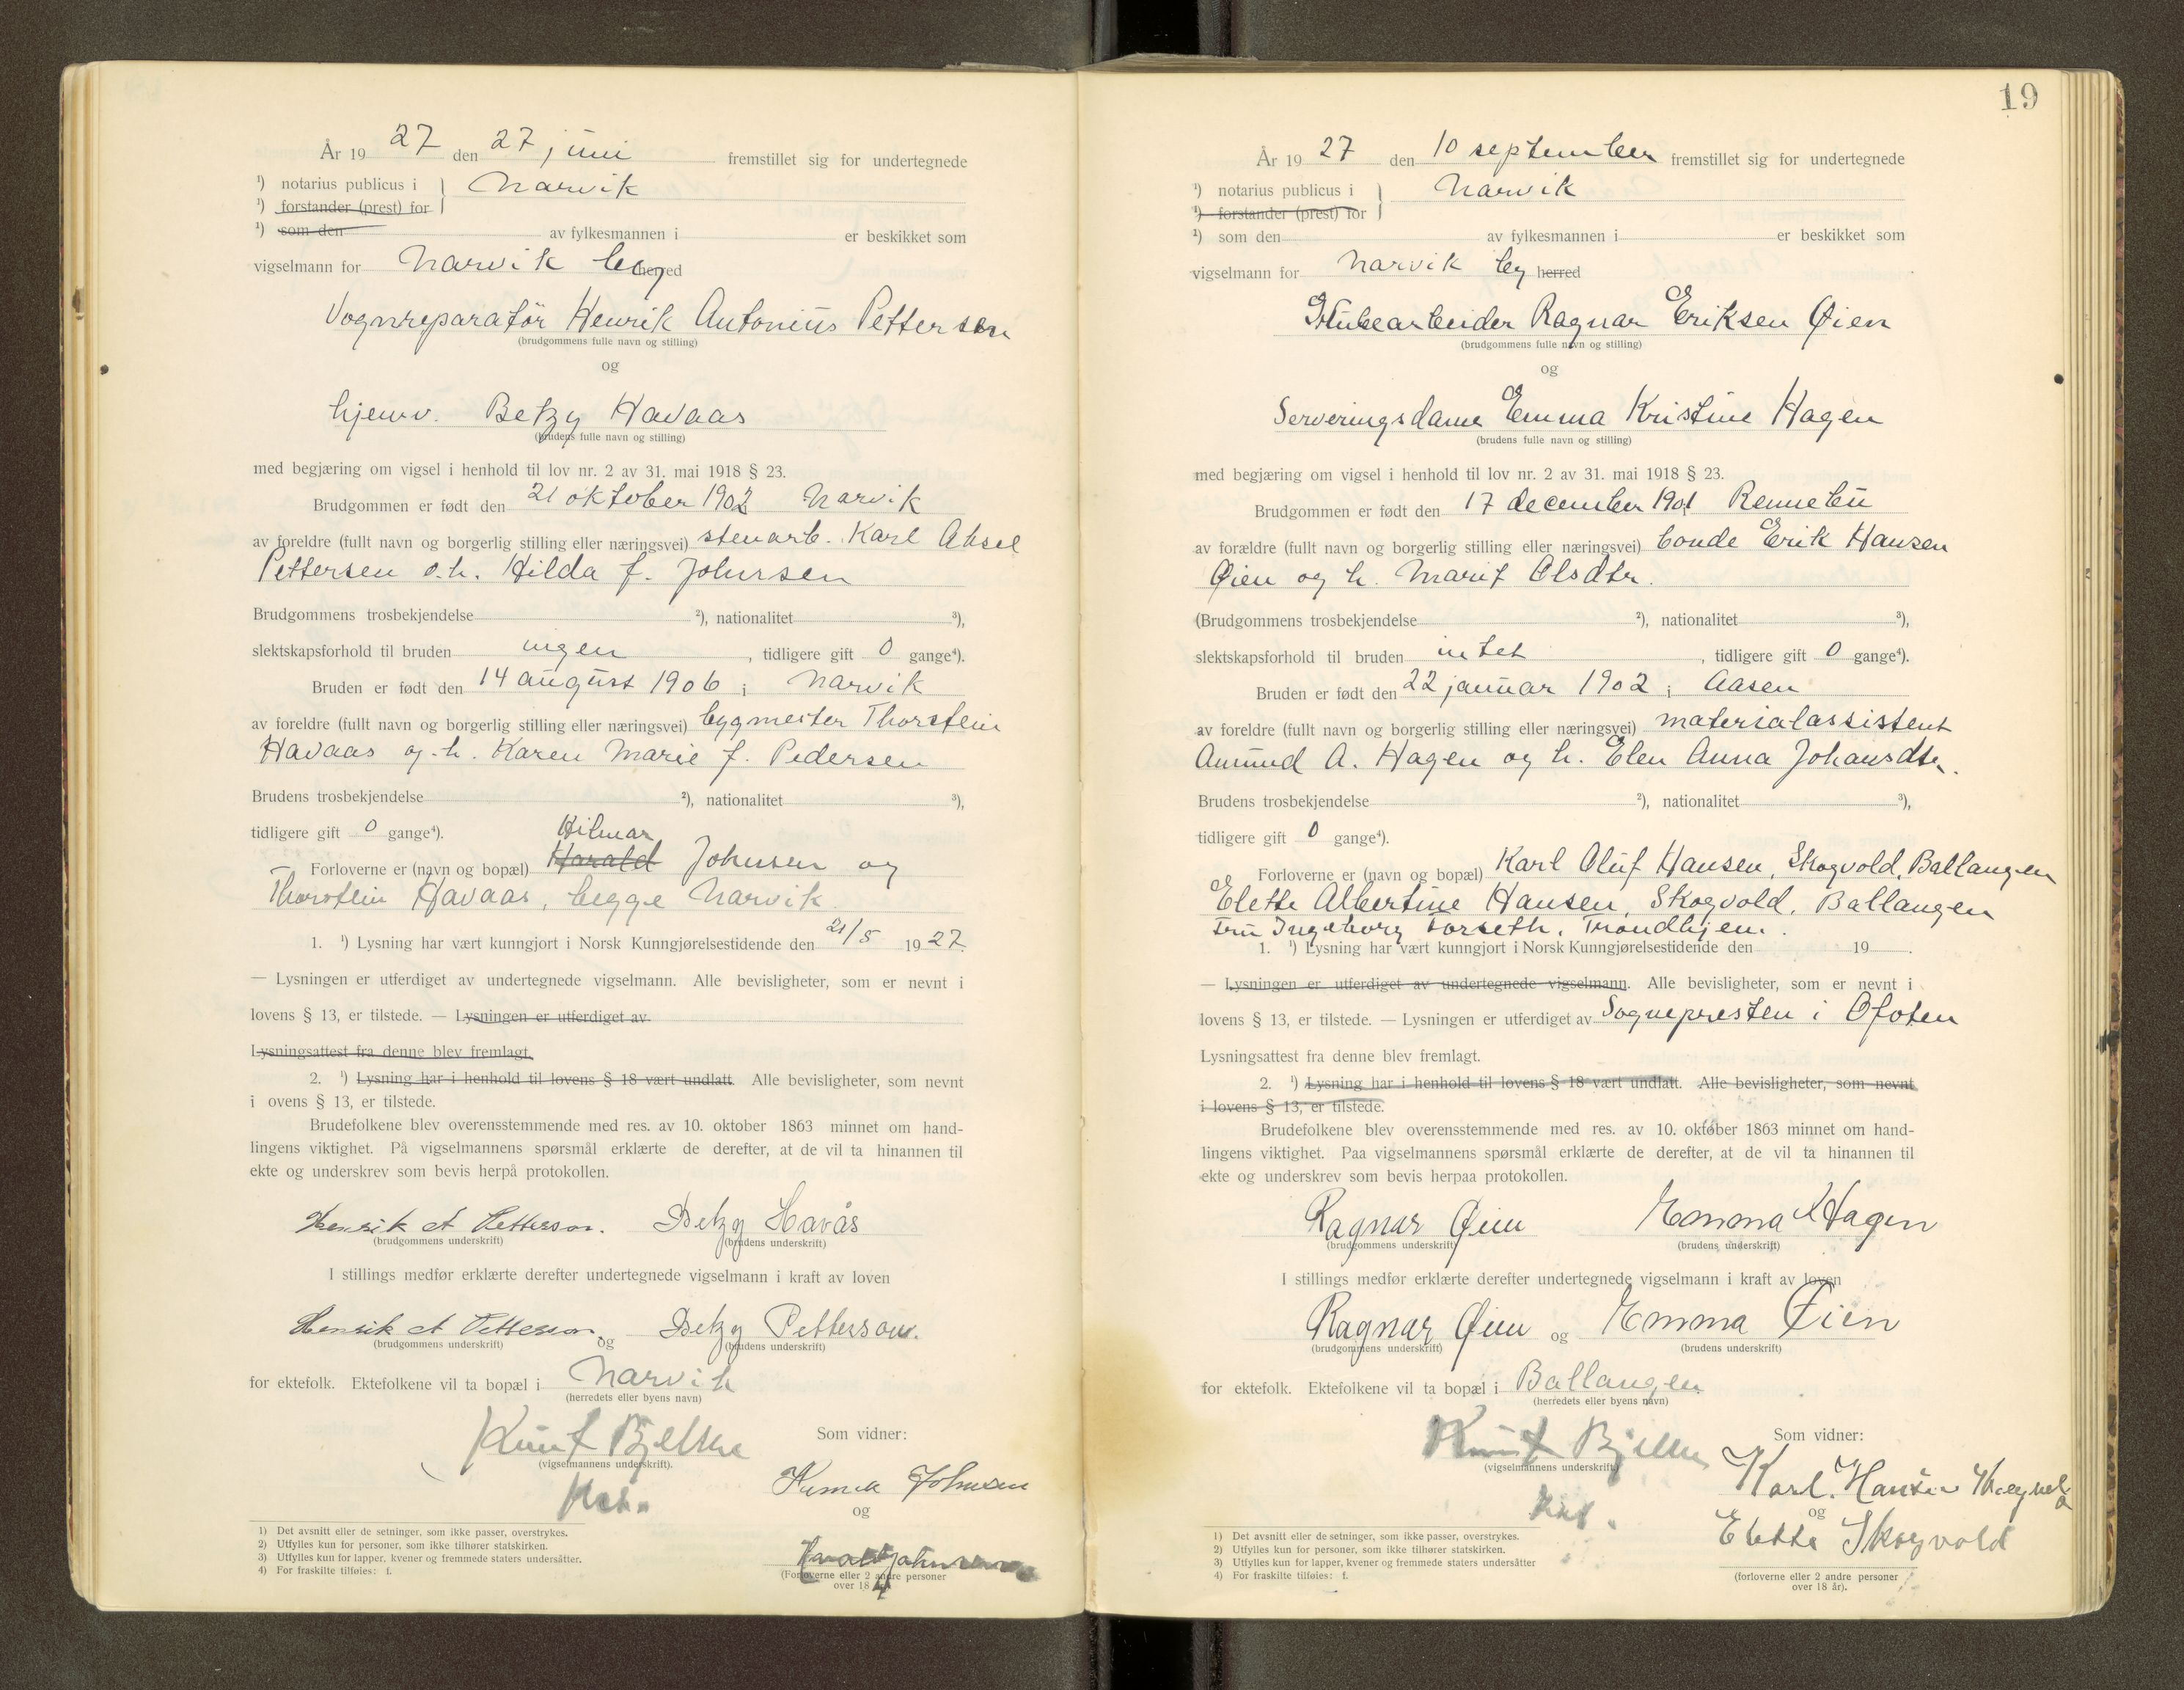 År 19 27 den 27 juni fremstillet sig for undertegnede
¹) notarius publicus i } Narvik
¹) forstander (prest) for
¹) som den av fylkesmannen i er beskikket som
vigselmann for Narvik by herred
Vognreparatör Henrik Antonius Pettersen
(brudgommens fulle navn og stilling)
og
hjemv. Betzy Havaas
(brudens fulle navn og stilling)
med begjæring om vigsel i henhold til lov nr. 2 av 31. mai 1918 § 23.
Brudgommen er født den 21 oktober 1902 Narvik
av foreldre (fullt navn og borgerlig stilling eller næringsvei) stenarb. Karl Aksel
Pettersen o.h. Hilda f. Johnsen
Brudgommens trosbekjendelse ²), nationalitet ³),
slektskapsforhold til bruden ingen , tidligere gift 0 gange⁴).
Bruden er født den 14 august 1906 i Narvik
av foreldre (fullt navn og borgerlig stilling eller næringsvei) bygmester Thorstein
Havaas og h. Karen Marie f. Pedersen
Brudens trosbekjendelse ²), nationalitet ³),
tidligere gift 0 gange⁴).
Hilmar
Forloverne er (navn og bopæl) Harald Johnsen og
Thorstein Havaas, begge Narvik.
1. ¹) Lysning har vært kunngjort i Norsk Kunngjørelsestidende den 21/5 19 27.
— Lysningen er utferdiget av undertegnede vigselmann. Alle bevisligheter, som er nevnt i
lovens § 13, er tilstede. — Lysningen er utferdiget av
Lysningsattest fra denne blev fremlagt.
2. ¹) Lysning har i henhold til lovens § 18 vært undlatt. Alle bevisligheter, som nevnt
i ovens § 13, er tilstede.
Brudefolkene blev overensstemmende med res. av 10. oktober 1863 minnet om hand-
lingens viktighet. På vigselmannens spørsmål erklærte de derefter, at de vil ta hinannen til
ekte og underskrev som bevis herpå protokollen.
Henrik A Petterson. Betzy Havås
(brudgommens underskrift) (brudens underskrift)
I stillings medfør erklærte derefter undertegnede vigselmann i kraft av loven
Henrik A Petterson. og Betzy Petterson.
(brudgommens underskrift) (brudens underskrift)
for ektefolk. Ektefolkene vil ta bopæl i Narvik
(herredets eller byens navn)
Knut Bjelke
(vigselmannens underskrift).
Som vidner:
Johnsen
og
(Forloverne eller 2 andre personer
over 18 år).
1) Det avsnitt eller de setninger, som ikke passer, overstrykes.
2) Utfylles kun for personer, som ikke tilhører statskirken.
3) Utfylles kun for lapper, kvener og fremmede staters undersåtter.
4) For fraskilte tilføies: f.
19
År 19 27 den 10 september fremstillet sig for undertegnede
¹) notarius publicus i } Narvik
¹) forstander (prest) for
¹) som den av fylkesmannen i er beskikket som
vigselmann for Narvik by herred
Grubearbeider Ragnar Eriksen Øien
(brudgommens fulle navn og stilling)
og
Serveringsdame Emma Kristine Hagen
(brudens fulle navn og stilling)
med begjæring om vigsel i henhold til lov nr. 2 av 31. mai 1918 § 23.
Brudgommen er født den 17 december 1901 Rennebu
av forældre (fullt navn og borgerlig stilling eller næringsvei) bonde Erik Hansen
Øien og h. Marit Olsdtr.
(Brudgommens trosbekjendelse ²), nationalitet ³),
slektskapsforhold til bruden intet , tidligere gift 0 gange⁴).
Bruden er født den 22 januar 1902 i Aasen
av foreldre (fullt navn og borgerlig stilling eller næringsvei) materialassistent
Amund A. Hagen og h. Elen Anna Johansdtr.
Brudens trosbekjendelse ²), nationalitet ³),
tidligere gift 0 gange⁴).
Forloverne er (navn og bopæl) Karl Oluf Hansen, Skogvold, Ballangen
Elette Albertine Hansen, Skogvold, Ballangen
Fru Ingeborg Forseth, Trondhjem.
1. ¹) Lysning har vært kunngjort i Norsk Kunngjørelsestidende den 19 .
— Lysningen er utferdiget av undertegnede vigselmann. Alle bevisligheter, som er nevnt i
lovens § 13, er tilstede. — Lysningen er utferdiget av Sognepresten i Ofoten
Lysningsattest fra denne blev fremlagt.
2. ¹) Lysning har i henhold til lovens § 18 vært undlatt. Alle bevisligheter, som nevnt
i lovens § 13, er tilstede.
Brudefolkene blev overensstemmende med res. av 10. oktober 1863 minnet om hand-
lingens viktighet. Paa vigselmannens spørsmål erklærte de derefter, at de vil ta hinannen til
ekte og underskrev som bevis herpaa protokollen.
Ragnar Øien Emma K Hagen
(brudgommens underskrift) (brudens underskrift)
I stillings medfør erklærte derefter undertegnede vigselmann i kraft av loven
Ragnar Øien og Emma Øien
(brudgommens underskrift) (brudens underskrift)
for ektefolk. Ektefolkene vil ta bopæl i Ballangen
(herredets eller byens navn)
Knut Bjelke
(vigselmannens underskrift)
Som vidner:
Karl. Hansen Skogvold
og
Elette Skogvold
(forloverne eller 2 andre personer
over 18 år).
1) Det avsnitt eller de setninger, som ikke passer, overstrykes.
2) Utfylles kun for personer, som ikke tilhører statskirken.
3) Utfylles kun for lapper, kvener og fremmede staters undersåtter
4) For fraskilte tilføies: f.